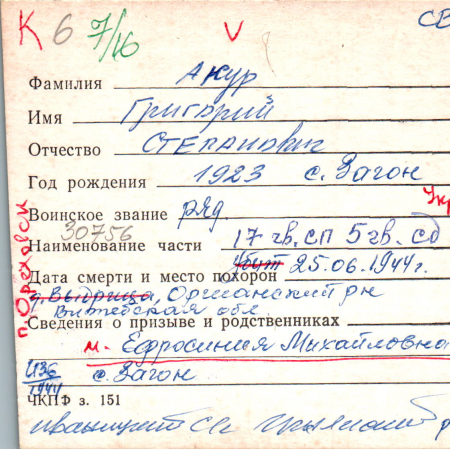 К 6 7/16 V СВ
Фамилия Акур
Имя Григорий
Отчество Степанович
Год рождения 1923 с. Загон
Укр
Воинское звание ряд.
30756
Наименование части 17 гв. сп 5 гв. сд
убит
Дата смерти и место похорон 25.06.1944г.
д. Выдрица, Оршанский р-н
Витебская обл.
п. Ореховск
Сведения о призыве и родственниках
м. Ефросиния Михайловна
436
1944 с. Загон
ЧКПФ з. 151